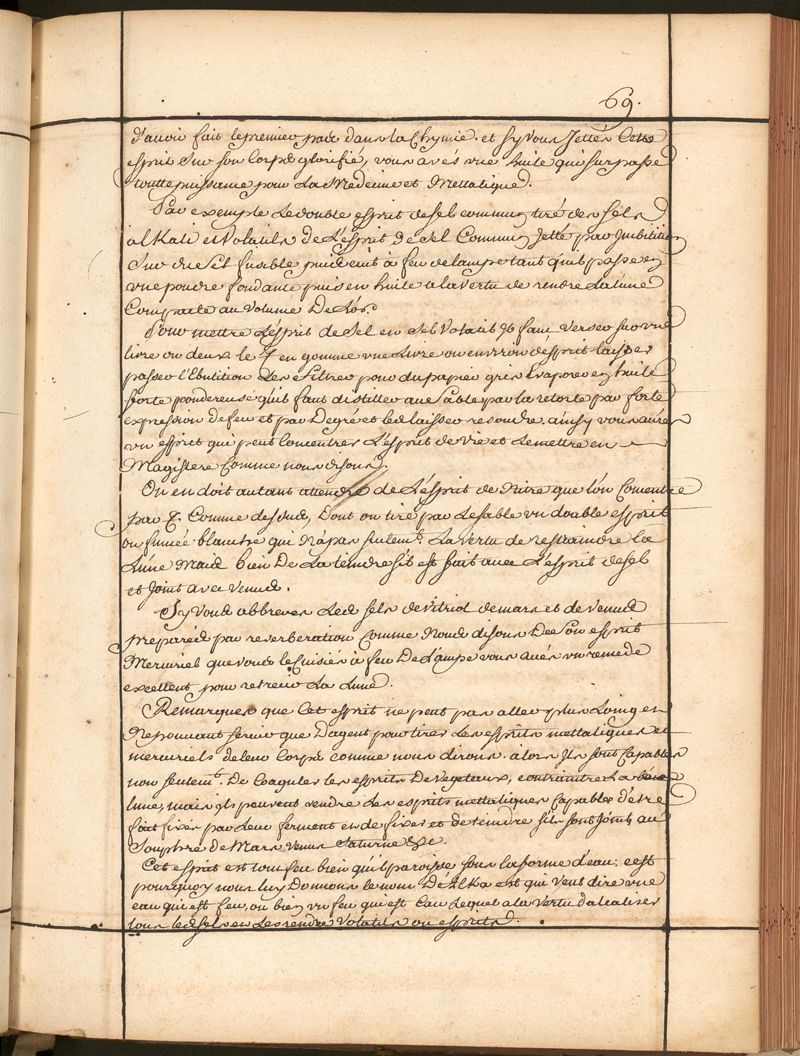 69.
d'avoir fait le premier pas dans la Chymie. et sy vous Jettés Cette
esprit sur son Corps glorifié, vous avés une huile qui surpasse
toutte puissance pour La Medecine et Mettalique.
Par exemple Le double esprit de sel commun tiré des sels
alKali et Volatils de L'esprit de sel Commun Jetté par Imbibition
sur du sel fusible puis cuit à feu de lampe tant qu'il passe en
une poudre fondante puis en huile a la vertu de rendre La lune
Compacte au Volume De L'or.
Pour mettre L'esprit de sel en sel Volatil Il faut verser sur une
livre ou deux le en gomme une Livre ou environ d'esprit laisser
passer l'Ebulition Les filtrer pour du papier gris Evaporer en huile
forte pondereuse qu'il faut distiller au sable par la retorte par forte
expression de feu et par Degré et les laisser resoudre. ainsy vous aurés
un esprit qui peut Concentrer L'esprit de vie et Le mettre en
Magistere Comme nous disons.
On en doit autant attendre de L'esprit de Nitre que l'on Concentre
par Comme dessus, Dont on tire par Le sable un double esprit
ou fumée blanche qui N'a pas seulemt. La vertu de restraindre la
Lune Mais bien De La teindre s'il est fait avec L'esprit de sel
et Joint avec Venus.
Sy vous abbrevés Les sels de Vitriol de mars et de Venus
preparés par reverberation Comme Nous disons De son esprit
Mercuriel que vous le Cuisiés à feu De Lampe vous aurés un remede
excellent pour retrecir La Lune.
Remarquer que Cet esprit ne peut pas aller plus Loing en
Ne pouvant servir que D'agent pour tirer Les esprits mettaliques et
mercuriels de leur Corps comme nous dirons. alors Ils sont Capables
non seulemt. De Coaguler les esprits De Vegetaux, contraindre La
lune, mais ils peuvent rendre Les esprits mettaliques Capables d'être
fait fixés par Leur ferment et de fixer et de teindre s'ils sont Joints au
Soulphre de Mars Venus Saturne &c.
Cet esprit est tout feu bien qu'il paroisse sous la forme d'eau; c'est
pourquoy nous luy Donnons le nom D'Alkaest qui Veut dire une
eau qui est feu, ou bien un feu qui est Eau Lequel a la Vertu d'alcaliser
tous les sels en Les rendre Volatils ou esprits.